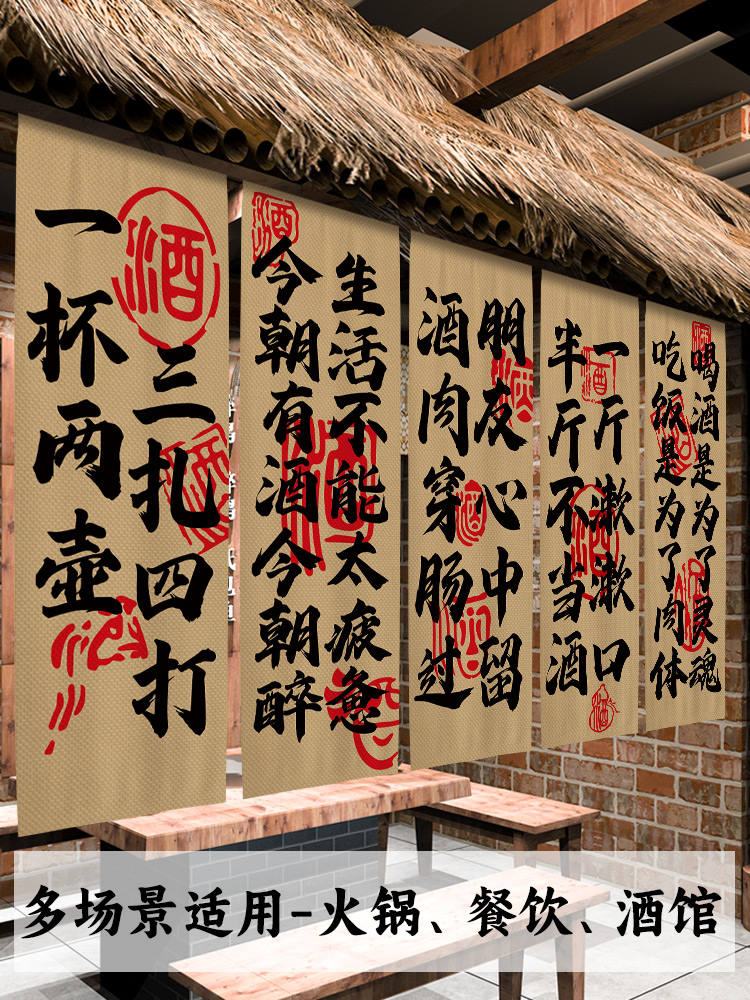 一杯两壶
酒
三扎四打
酒
酒
今朝有酒今朝醉
酒
生活不能太疲惫
酒
酒肉穿肠过
朋友心中留
酒
酒
酒
半斤不当酒
一斤漱漱口
酒
酒
酒
吃饭是为了肉体
喝酒是为了灵魂
多场景适用-火锅、餐饮、酒馆